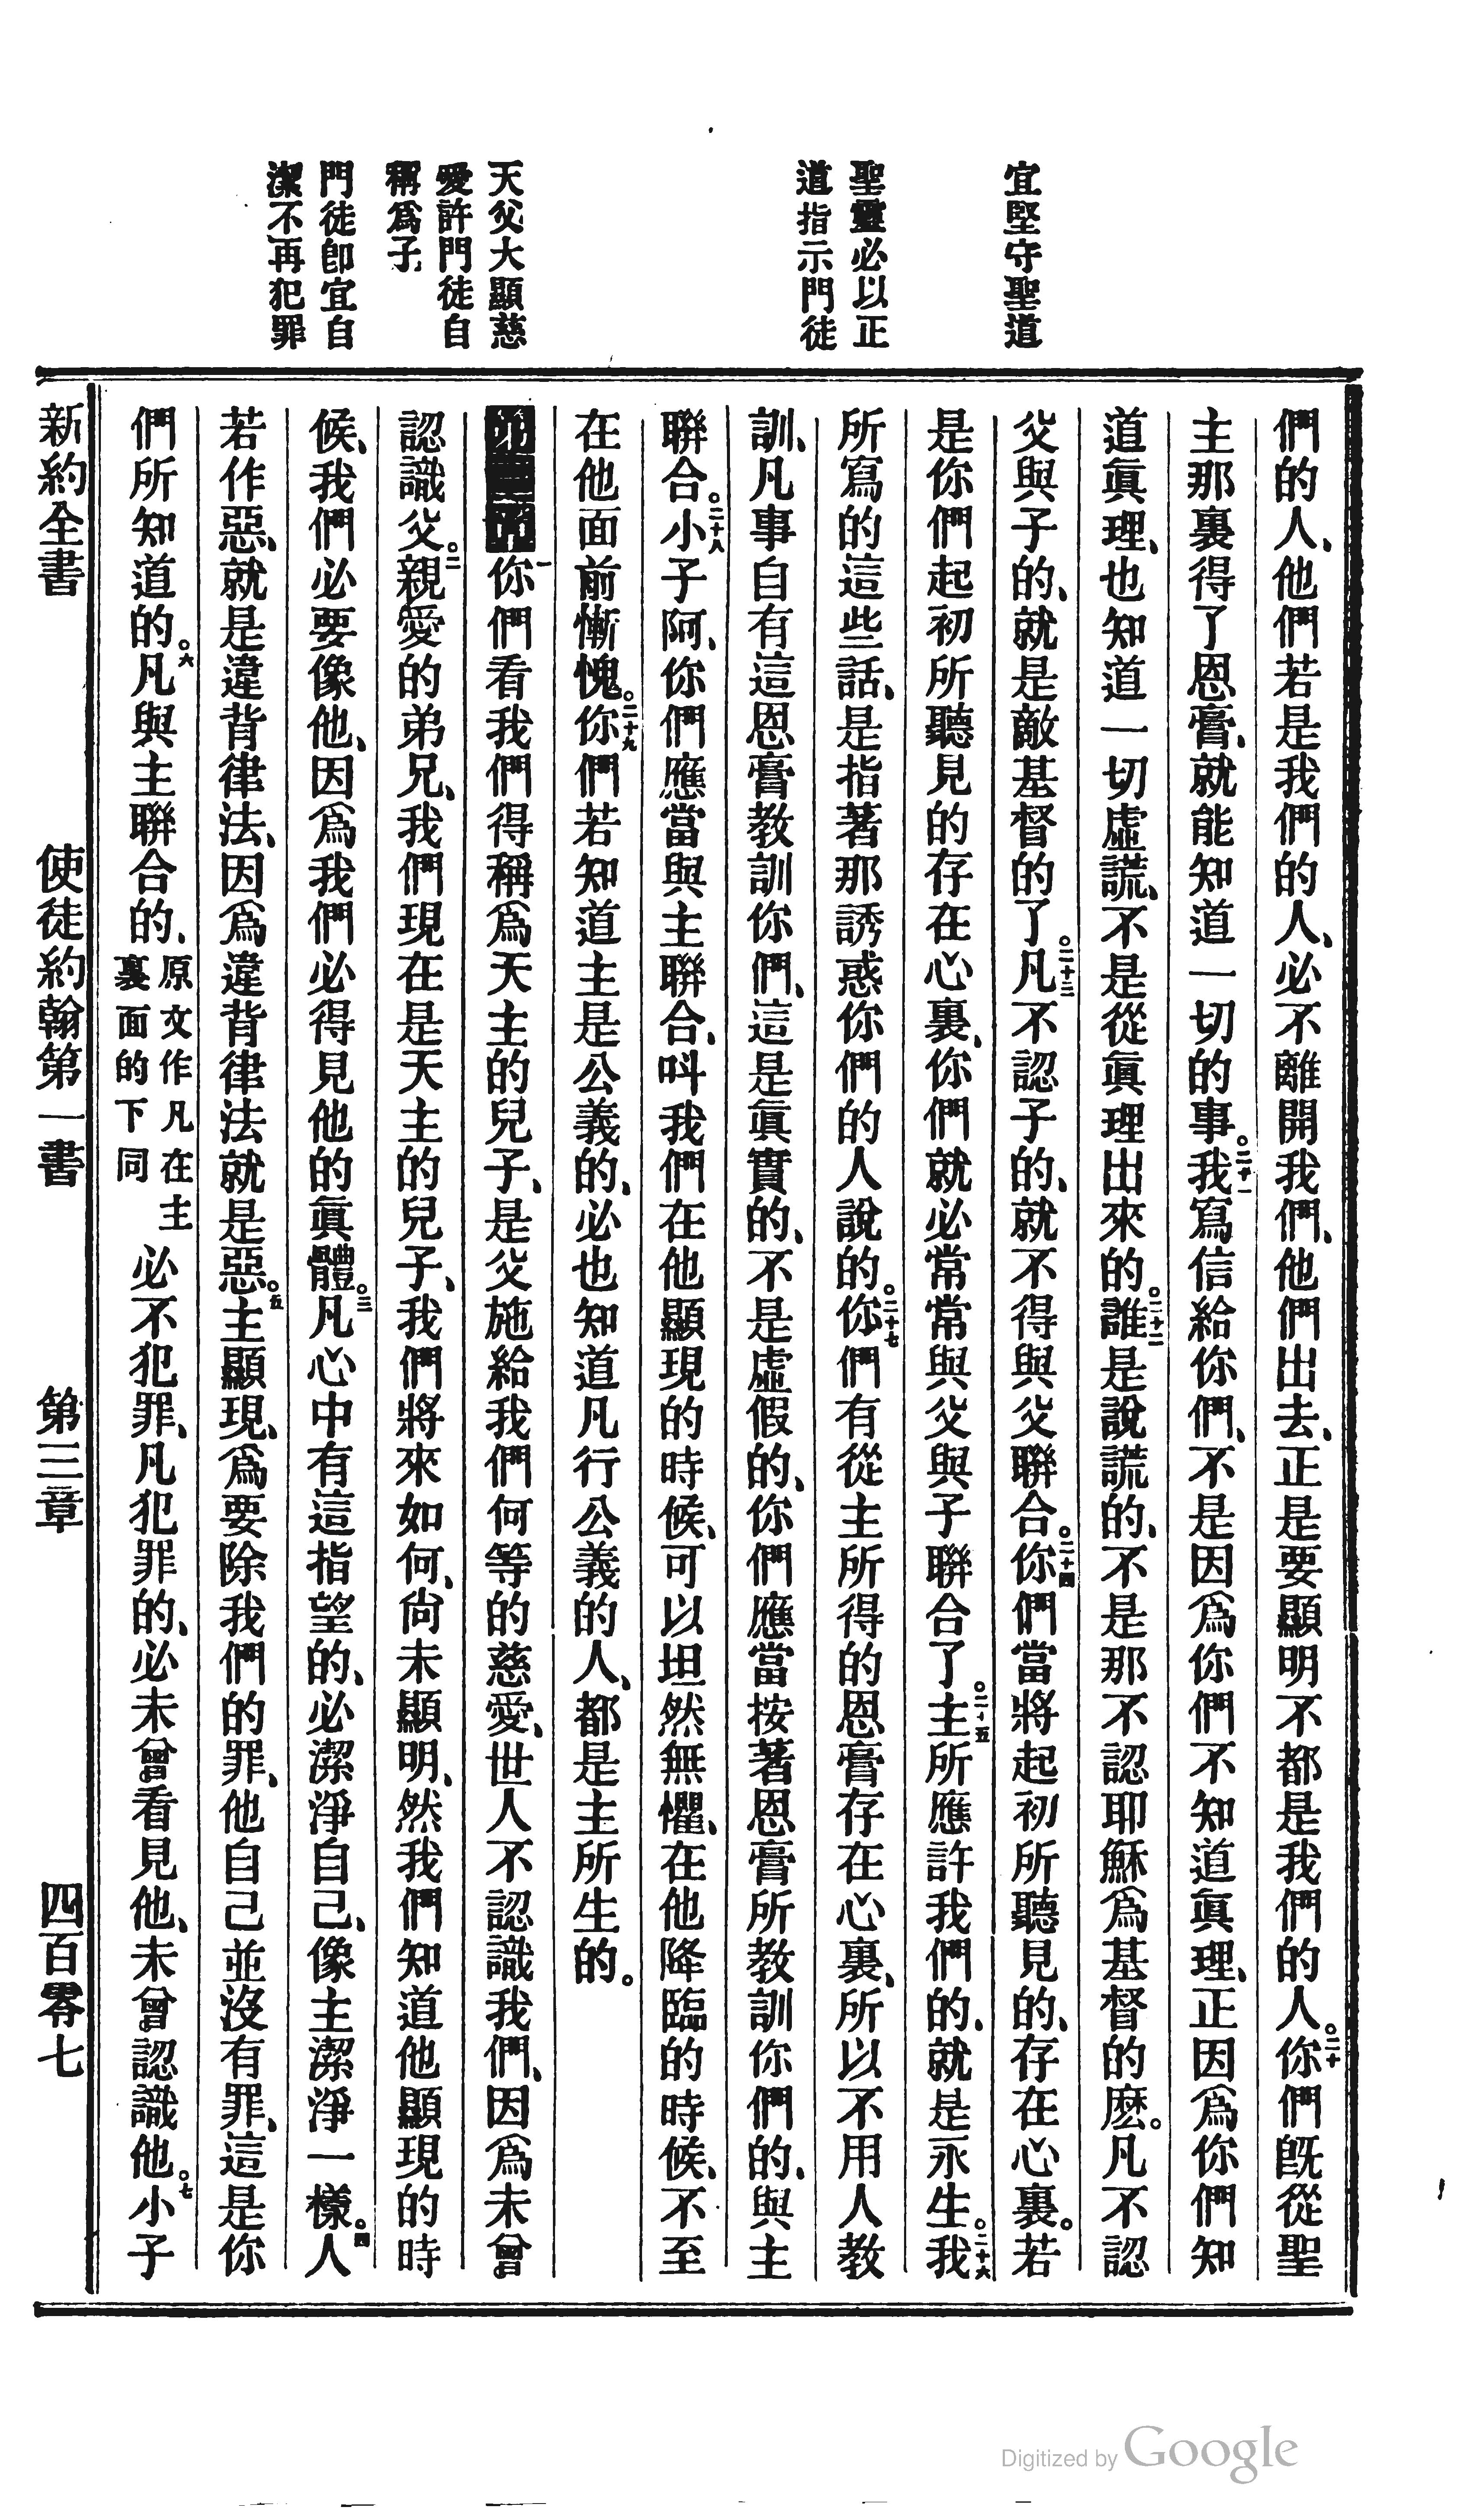 宜堅守聖道
聖靈必以正
道指示門徒
天父大顯慈
愛許門徒自
稱爲子
門徒卽宜自
潔不再犯罪
們的人、他們若是我們的人、必不離開我們、他們出去、正是要顯明不都是我們的人。二十你們旣從聖
主那裏得了恩膏、就能知道一切的事。二十一我寫信給你們、不是因爲你們不知道眞理、正因爲你們知
道眞理、也知道一切虛謊、不是從眞理出來的。二十二誰是說謊的、不是那不認耶穌爲基督的麽。凡不認
父與子的、就是敵基督的了。二十三凡不認子的、就不得與父聯合。二十四你們當將起初所聽見的、存在心裏。若
是你們起初所聽見的存在心裏、你們就必常常與父與子聯合了。二十五主所應許我們的、就是永生。二十六我
所寫的這些話、是指著那誘惑你們的人說的。二十七你們有從主所得的恩膏存在心裏、所以不用人教
訓、凡事自有這恩膏教訓你們、這是眞實的、不是虛假的、你們應當按著恩膏所教訓你們的、與主
聯合。二十八小子阿、你們應當與主聯合、呌我們在他顯現的時候、可以坦然無懼、在他降臨的時候、不至
在他面前慚愧。二十九你們若知道主是公義的、必也知道凡行公義的人、都是主所生的。
第三章一你們看我們得稱爲天主的兒子、是父施給我們何等的慈愛、世人不認識我們、因爲未曾
認識父。二親愛的弟兄、我們現在是天主的兒子、我們將來如何、尙未顯明、然我們知道他顯現的時
候、我們必要像他、因爲我們必得見他的眞體。三凡心中有這指望的、必潔淨自己、像主潔淨一樣。四人
若作惡、就是違背律法、因爲違背律法就是惡。五主顯現、爲要除我們的罪、他自己並沒有罪、這是你
們所知道的。六凡與主聯合的、原文作凡在主裏面的下同必不犯罪、凡犯罪的、必未曾看見他、未曾認識他。七小子
新約全書 使徒約翰第一書 第三章 四百零七
Digitized by Google